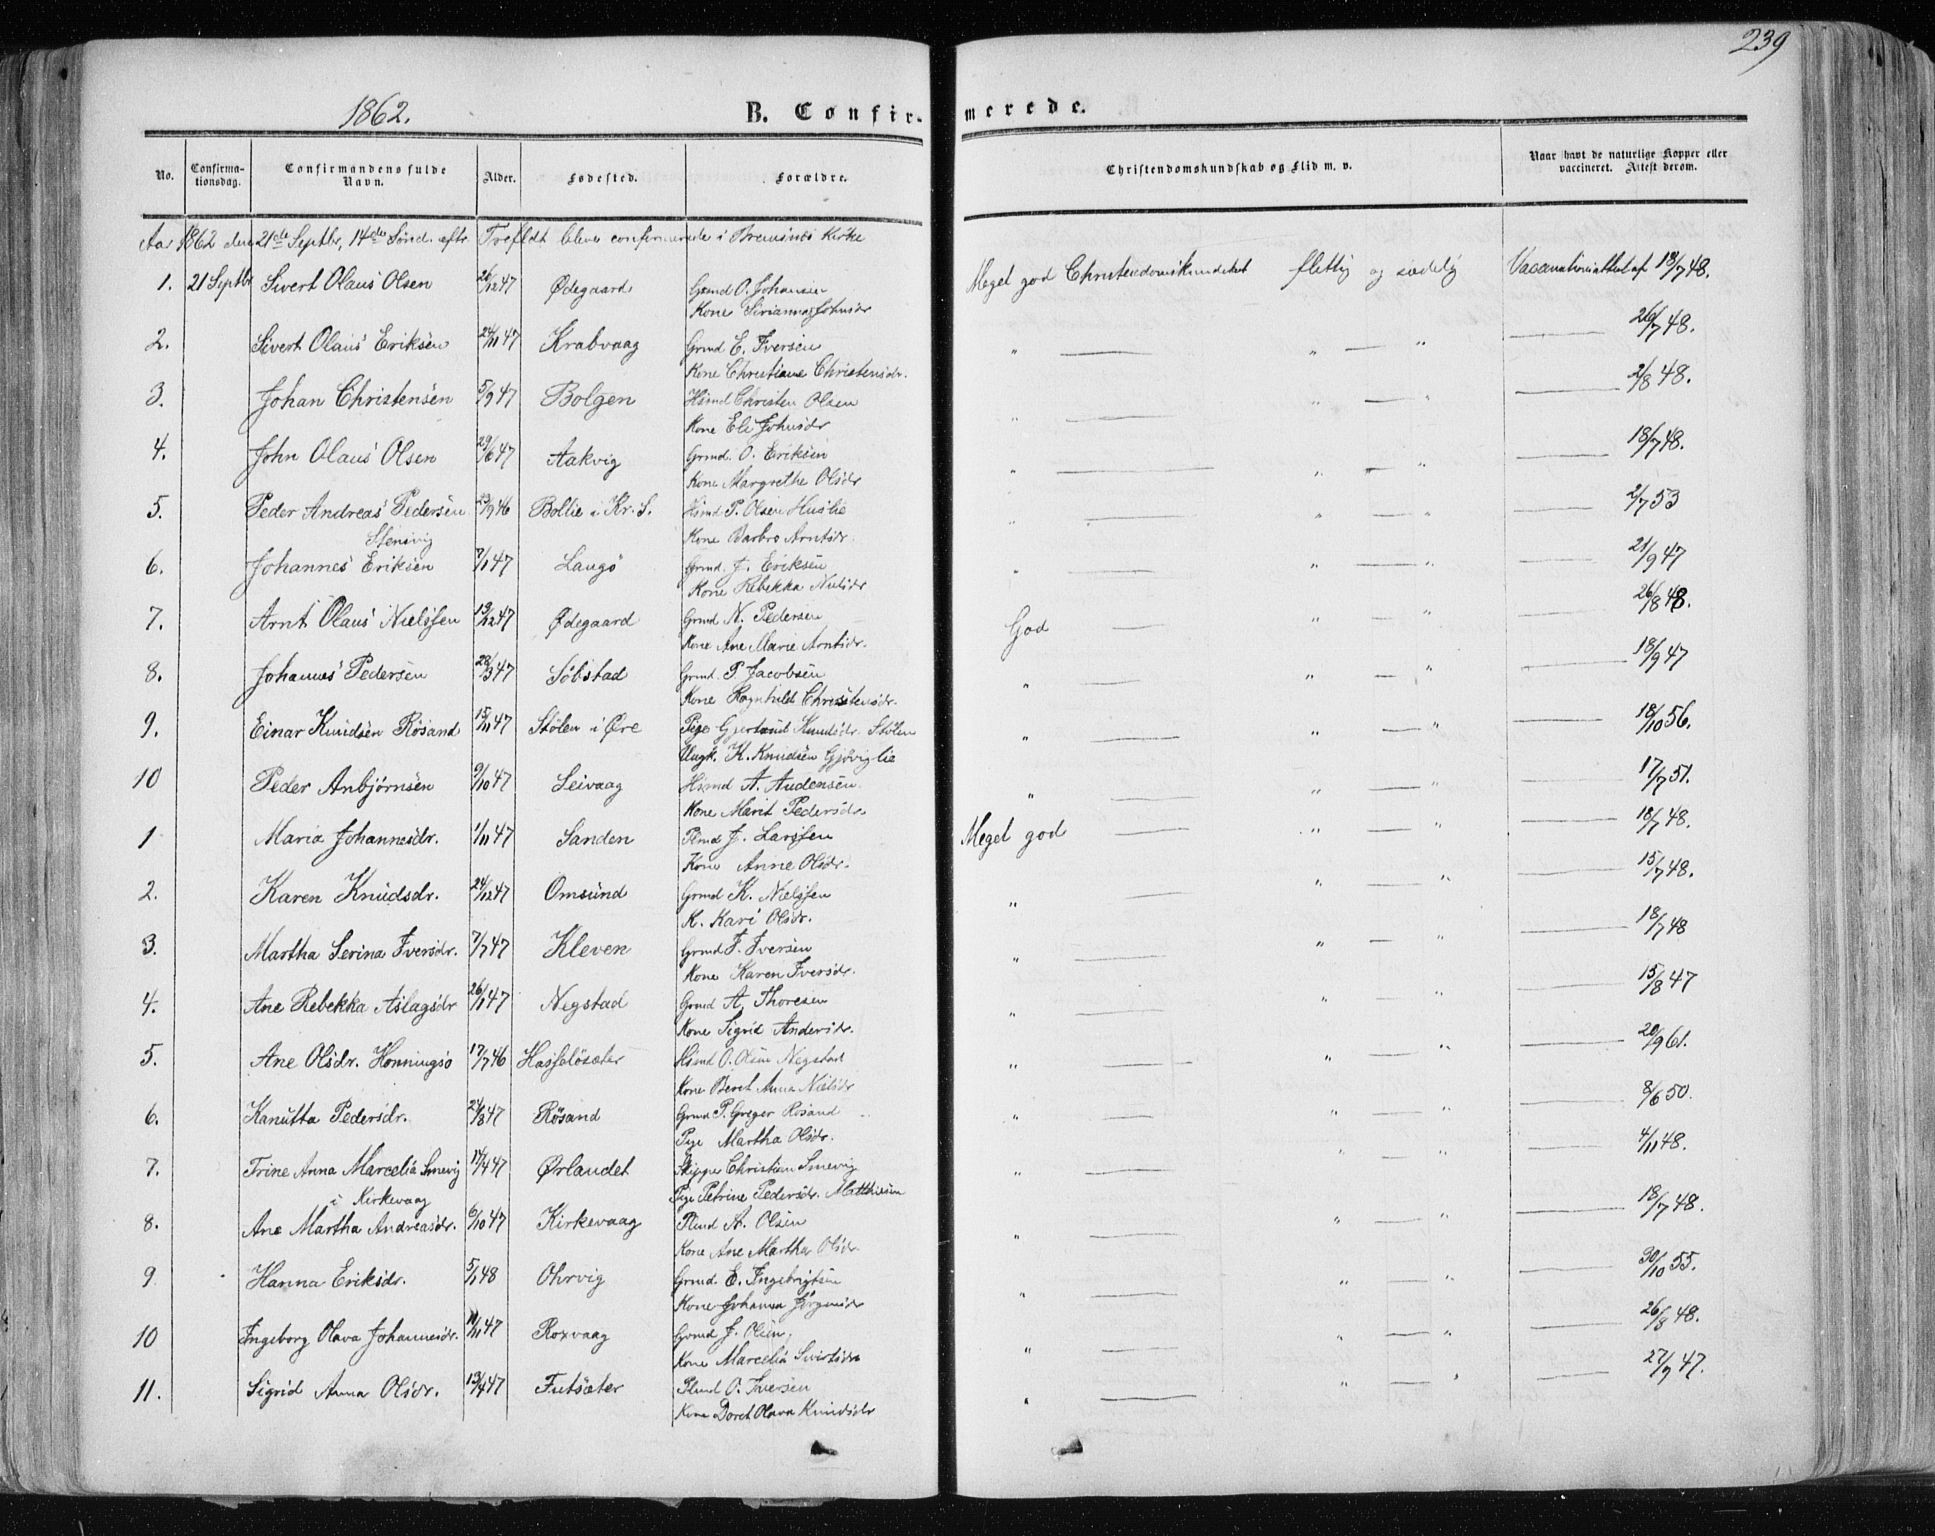 239
1862. B. Confirmerede.
No. Confirmationsdag. Confirmandens fulde Navn. Alder. Fødested. Forældre. Christendomskundskab og Flid m. v. Naar havt de naturlige Kopper eller vaccineret. Attest derom.
Aar 1862 den 21de Septbr, 14de Sønd. eftr. Trefldt blev confirmerede i Bremsnes Kirke
1. 21 Septbr Sivert Olaus Olsen 26/12 47 Ødegaard Grmd O. Johansen Meget god Christendomskundskab flittig og sædelig Vaccinationsattest af 18/7 48.
Kone Siriannas Johnsdr
2. Sivert Olaus Eriksen 24/11 47 Krabvaag Grmd E. Iversen " — " — " — 26/7 48.
Kone Christiane Christensdr.
3. Johan Christensen 5/9 47 Bolgen Hsmd Christen Olsen " — " — " — 2/8 48.
Kone Eli Johnsdr
4. John Olaus Olsen 29/6 47 Aakvig Grmd. O. Eriksen " — " — " — 18/7 48.
Kone Margrethe Olsdr
5. Peder Andreas Pedersen 23/9 46 Bollie i Kr. S. Hsmd P. Olsen Huslie " — " — " — 2/7 53
Stensvig Kone Barbro Arntsdr
6. Johannes Eriksen 7/1 47 Langö Grmd. J. Eriksen " — " — " — 21/9 47
Kone Rebekka Nielsdr
7. Arnt Olaus Nielssen 19/12 47 Ødegaard Grmd N. Pedersen God — " — " — 26/8 48.
Kone Ane Marie Arntsdr.
8. Johannes Pedersen 28/3 47 Söbstad Grmd. P. Jacobsen " — " — " — 18/9 47
Kone Ragnhild Christensdr.
9. Einar Knudsen Rösand 15/11 47 Stölen i Øre Pige Gjertrud Knudsdr. Stölen " — " — " — 18/10 56.
Ungk. K. Knudsen Gjövig lie
10 Peder Anbjørnsen 9/10 47 Leivaag Hsmd A. Audensen " — " — " — 17/7 51.
Kone Marit Pedersdr
1 Maria Johannesdr. 1/11 47 Sanden Plmd J. Larssen Meget god — " — " — 18/7 48.
Kone Anne Olsdr.
2. Karen Knudsdr. 24/12 47 Omsund Grmd K. Nielssen " — " — " — 15/7 48.
K. Kari Olsdr.
3. Martha Serina Iversdr. 7/7 47 Kleven Grmd I. Iversen " — " — " — 18/7 48
Kone Karen Iversdr.
4. Ane Rebekka Aslagsdr 26/1 47 Negstad Grmd A. Thoresen " — " — " — 15/8 47
Kone Sigrid Andersdr.
5. Ane Olsdr. Honningsö 17/7 46 Hasselösæter Hsmd O. Olsen Negstad " — " — " — 20/9 61.
Kone Beret Anna Nielsdr
6. Kanutta Pedersdr. 24/8 47 Rösand Grmd P. Greger Rosand " — " — " — 8/6 50.
Pige Martha Olsdr.
7. Trine Anna Marcelia Smevig 14/4 47 Ørlandet Skipper Christian Smevig " — " — " — 4/11 48.
i Kirkevaag Pige Petrine Pedersdr. Matthisen
8. Ane Martha Andreasdr. 6/10 47 Kirkevaag Plmd A. Olsen " — " — " — 18/7 48.
Kone Ane Martha Olsdr.
9 Hanna Eriksdr. 5/1 48 Ohrvig Grmd. E. Ingebrigtsen " — " — " — 30/10 55.
Kone Johanna Jörgensdr
10 Ingeborg Olava Johannesdr. 11/11 47 Roxvaag Grmd J. Olsen, " — " — " — 26/8 48.
Kone Marcelia Sivertsdr
11. Sigrid Anna Olsdr. 13/4 47 Futsæter Plmd O. Iversen " — " — " — 27/9 47.
Kone Doret Olava Knudsdr